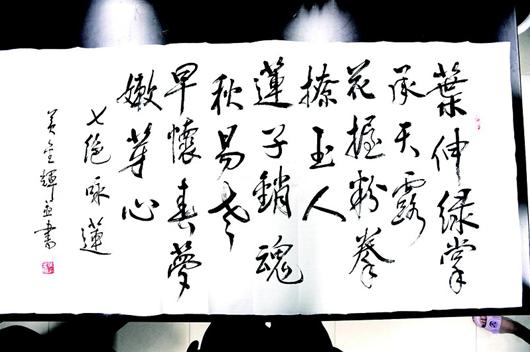 葉伸緑掌
承天露
花握粉拳
撩玉人
蓮子銷魂
秋易老
早懷春夢
嫩芽心
七絕咏蓮
黃金輝並書